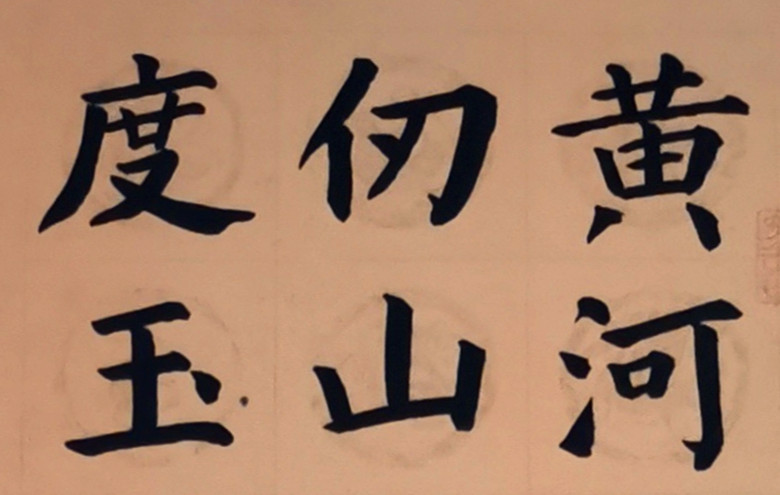 黄河
仞山
度玉